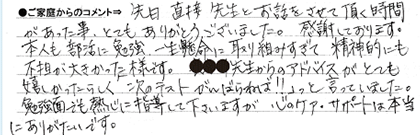 ●ご家庭からのコメント⇒ 先日 直接 先生とお話をさせて頂く時間
があった事、とてもありがとうございました。感謝しております。
本人も部活に勉強 一生懸命に取り組みすぎて 精神的にも
負担が大きかった様です。●●●先生からのアドバイスがとても
嬉しかったらしく 次のテストがんばらねば!!と言っていました。
勉強面でも熱心に指導して下さいますが 心のケア・サポートは本当
にありがたいです。